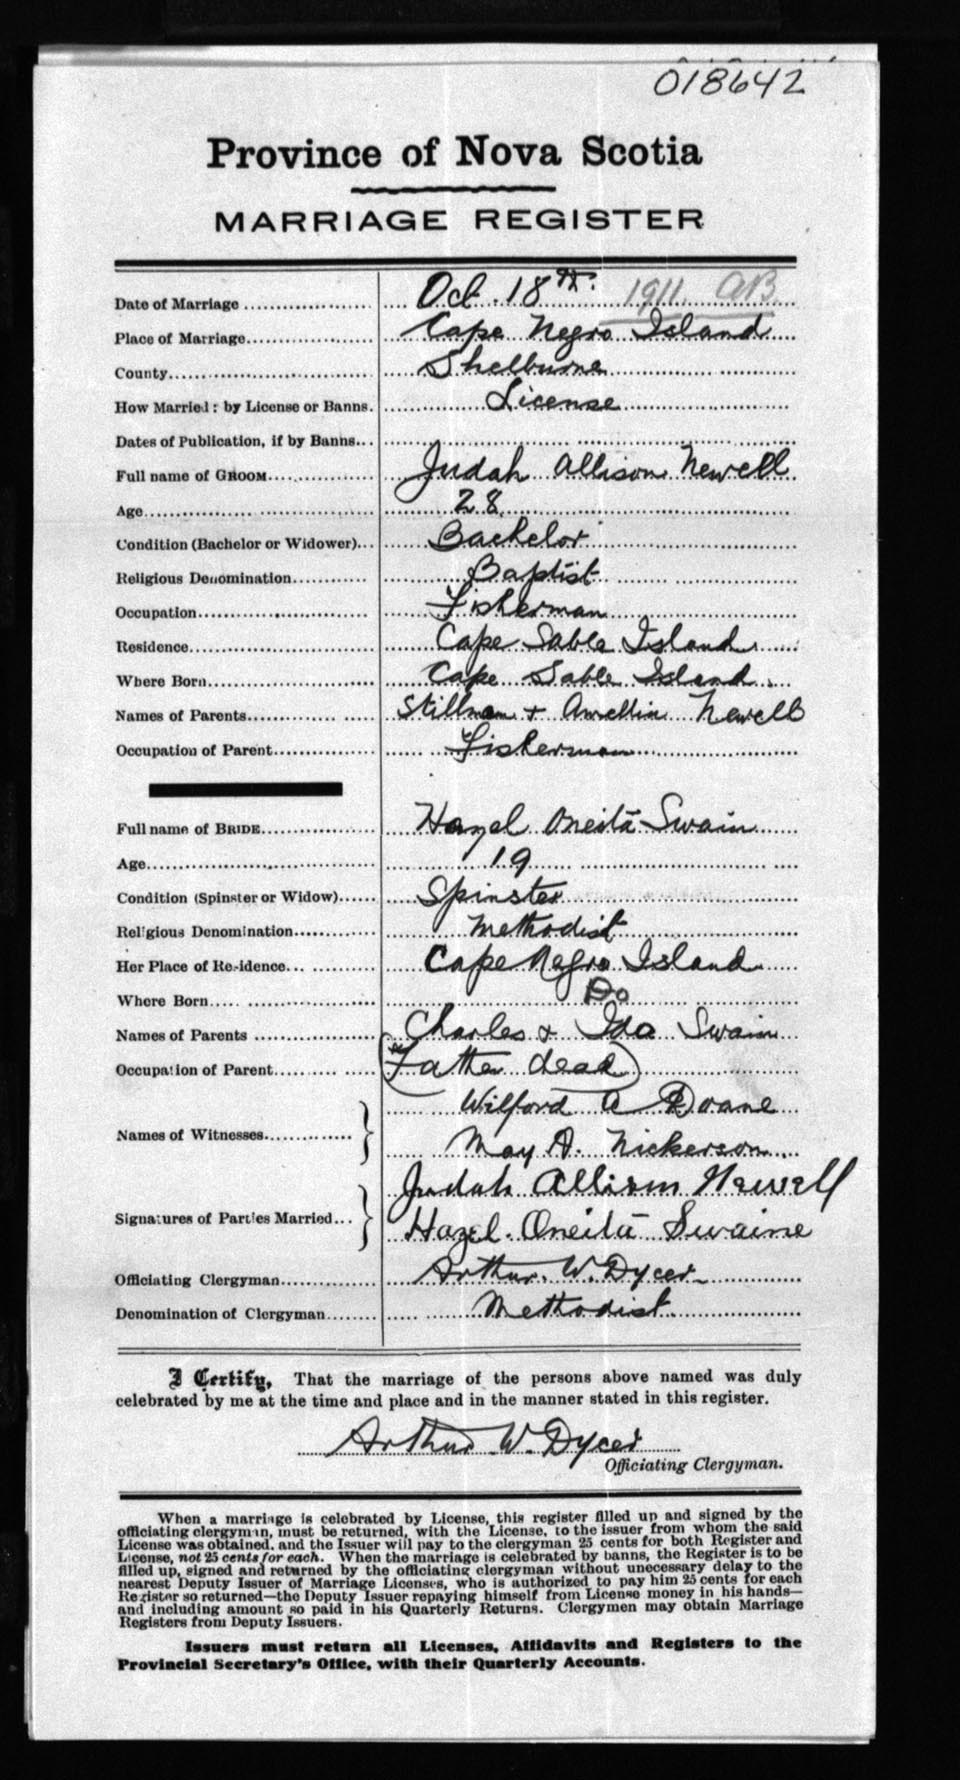 018642
Province of Nova Scotia
MARRIAGE REGISTER
Date of Marriage Oct. 18th. 1911. AB
Place of Marriage Cape Negro Island
County Shelburne
How Married: by License or Banns. License
Dates of Publication, if by Banns
Full name of GROOM Judah Allison Newell
Age 28
Condition (Bachelor or Widower) Bachelor
Religious Denomination Baptist
Occupation Fisherman
Residence Cape Sable Island
Where Born Cape Sable Island
Names of Parents Stillman + Amellin Newell
Occupation of Parent Fisherman
Full name of BRIDE Hazel Oneita Swain
Age 19
Condition (Spinster or Widow) Spinster
Religious Denomination Methodist
Her Place of Residence Cape Negro Island
Where Born Do
Names of Parents Charles & Ida Swain
Occupation of Parent (Father dead)
Wilford A Doane
Names of Witnesses
May A. Nickerson
Judah Allison Newell
Signatures of Parties Married
Hazel. Oneita Swaine
Officiating Clergyman Arthur. W. Dycer
Denomination of Clergyman Methodist
I Certify, That the marriage of the persons above named was duly
celebrated by me at the time and place and in the manner stated in this register.
Arthur W. Dycer
Officiating Clergyman.
When a marriage is celebrated by License, this register filled up and signed by the
officiating clergyman, must be returned, with the License, to the issuer from whom the said
License was obtained, and the Issuer will pay to the clergyman 25 cents for both Register and
License, not 25 cents for each. When the marriage is celebrated by banns, the Register is to be
filled up, signed and returned by the officiating clergyman without unecessary delay to the
nearest Deputy Issuer of Marriage Licenses, who is authorized to pay him 25 cents for each
Register so returned—the Deputy Issuer repaying himself from License money in his hands—
and including amount so paid in his Quarterly Returns. Clergymen may obtain Marriage
Registers from Deputy Issuers.
Issuers must return all Licenses, Affidavits and Registers to the
Provincial Secretary's Office, with their Quarterly Accounts.